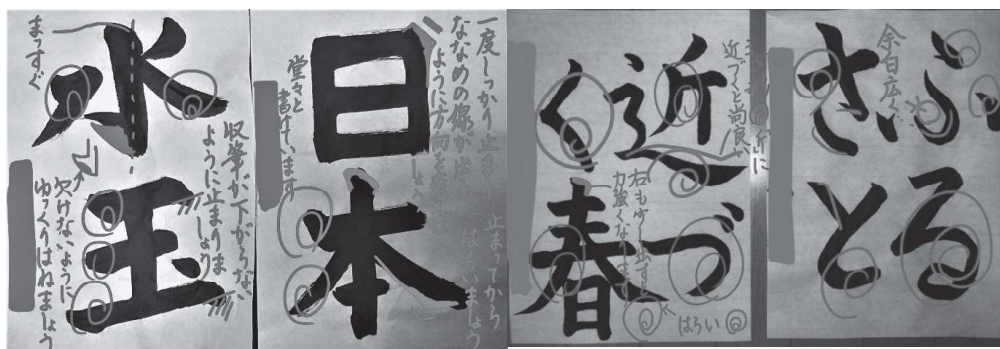 水玉
まっすぐ
収筆が下がらない
ように止まりま
しょう
欠けないように
ゆっくりはねましょう
日本
一度しっかり止まり
ななめの線が出ない
ように方向を
堂々と
書けています
止まってから
はらいましょう
近づ
く春
近に
近づくと尚良い
右も少し出すと
力強くなります
はらい
ふる
さと
余白広く